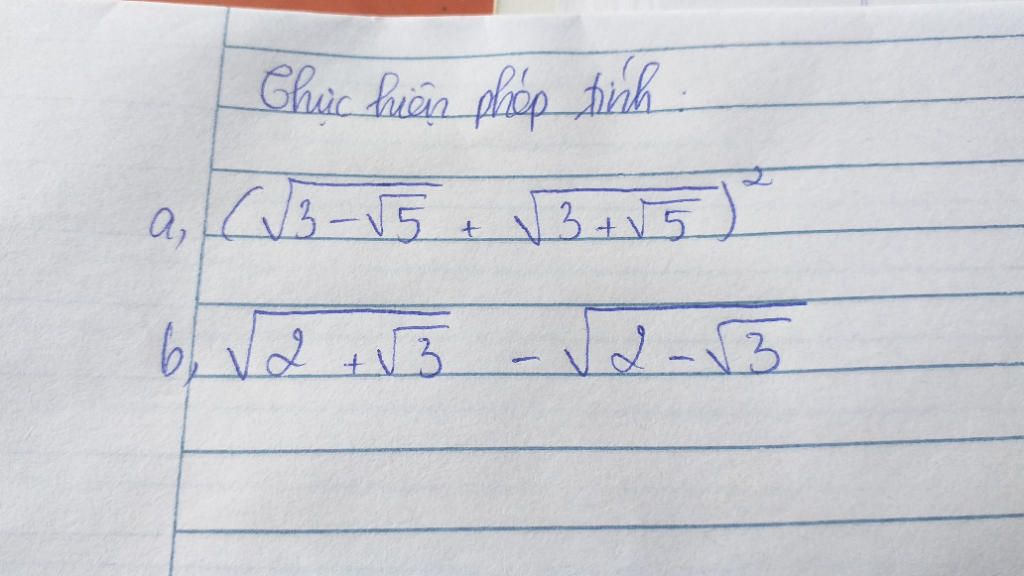 Thực hiện phép tính :
a, (√(3-√5) + √(3+√5))²
b, √(2+√3) - √(2-√3)